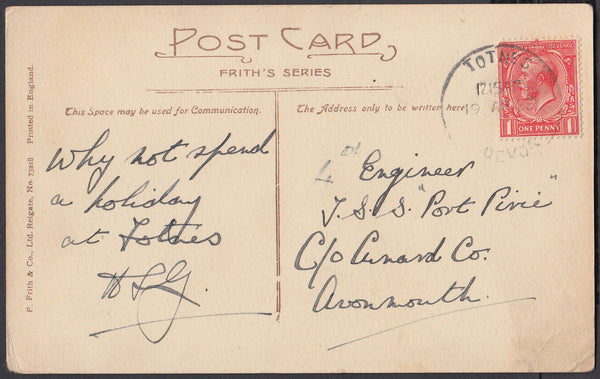 POST CARD
FRITH'S SERIES
This Space may be used for Communication.
The Address only to be written here.
Why not spend
a holiday
at Totnes
HSG.
4th Engineer
T.S.S. "Port Pirie"
C/o Cunard Co.
Avonmouth.
TOTNES
12.15
19
DEVON
REVENUE
ONE PENNY
1
1
F. Frith & Co., Ltd. Reigate, No. 73218 Printed in England.